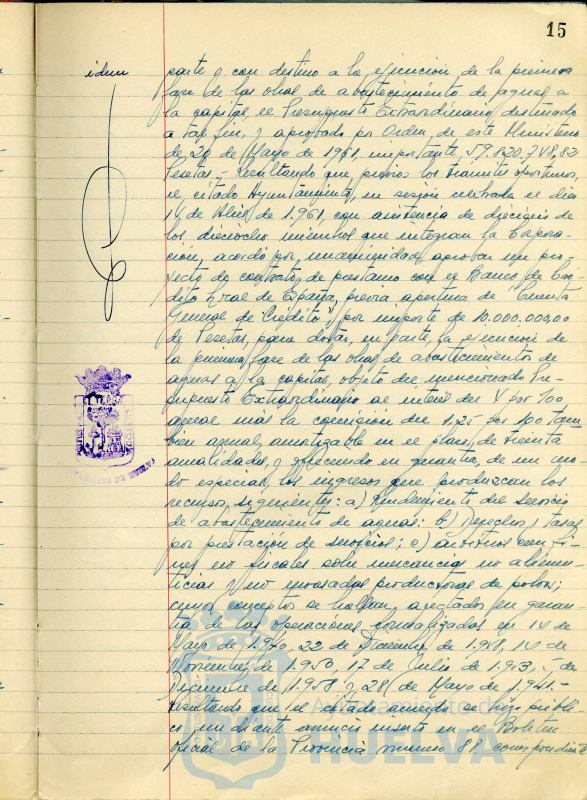 15
idem
parte y con destino a la ejecución de la primera
fase de las obras de abastecimiento de aguas a
la capital, el Presupuesto Extraordinario destinado
a tal fin, y aprobado por Orden, de este Ministerio
de 20 de Mayo de 1961, importante 59.820.748,82
Pesetas.- Resultando que, previos los trámites oportunos,
el citado Ayuntamiento, en sesión celebrada el dia
14 de Abril de 1.961, con asistencia de dieciseis de
los dieciocho miembros que integran la Corpora-
ción, acordó por unanimidad, aprobar un pro-
yecto de contrato de prestamo con el Banco de Cré-
dito Local de España, previa apertura de "Cuenta
General de Crédito", por importe de 10.000.000,00
de Pesetas, para dotar, en parte, la ejecución de
la primera fase de las obras de abastecimientos de
aguas a la capital, objeto del mencionado Pre-
supuesto Extraordinario al interés del V por 100
anual más la comisión del 1,25 por 100 tam
bien anual, amortizable en el plazo, de treinta
anualidades, y ofreciendo en garantia, de un mo-
do especial, los ingresos que produzcan los
recursos siguientes: a) Rendimiento del Servicio
de abastecimiento de aguas: b) Derechos y tasas
por prestación de servicios; c) arbitrios con fi-
nes no fiscales sobre mercancias no alimen-
ticias y no envasadas productoras de polvos;
cuyos conceptos se hallan, afectados en garan-
tia de las operaciones formalizadas en 14 de
Mayo de 1.940, 22 de Diciembre de 1.948, 14 de
Noviembre de 1.950, 17 de Julio de 1.953, 5 de
Diciembre de 1.958 y 28 de Mayo de 1.941.-
Resultando que el citado acuerdo se hizo públi-
co mediante anuncio inserto en el Boletin
Oficial de la Provincia número 88 correspondiente
Ayuntamiento de
HUELVA